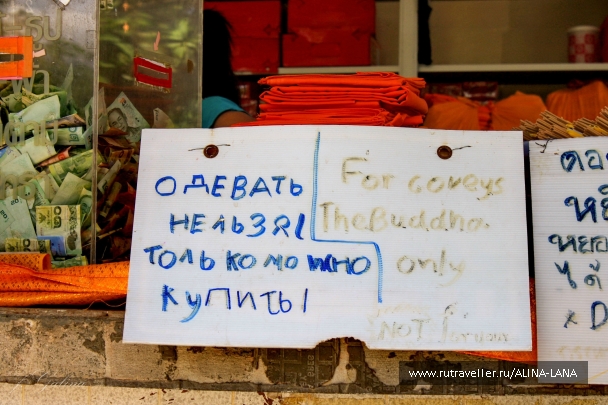 ОДЕВАТЬ
НЕЛЬЗЯ!
ТОЛЬКО МОЖНО
КУПИТЫ
For coveys
The Buddha
only
NOT for
www.rutraveller.ru/ALINA-LANA